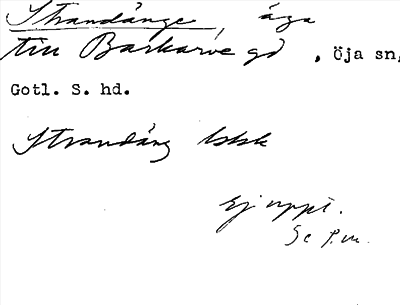 Strandänge, äga
till Barkarve gd, Öja sn,
Gotl. S. hd.
Strandäng
Ej uppt.
Se P.m.